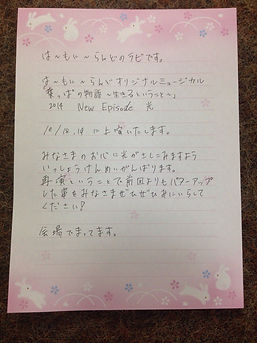 は〜もに〜らんどのラビです。
は〜もに〜らんどオリジナルミュージカル
「葉っぱの物語〜生きるということ〜」
2014 New Episode 光
10/12,14 に上演いたします。
みなさまのお心に光がさしこみますよう
いっしょうけんめいがんばります。
再演ということで前回よりもパワーアップ
した葉をみなさまぜひぜひみにいらして
ください!
会場でまってます。